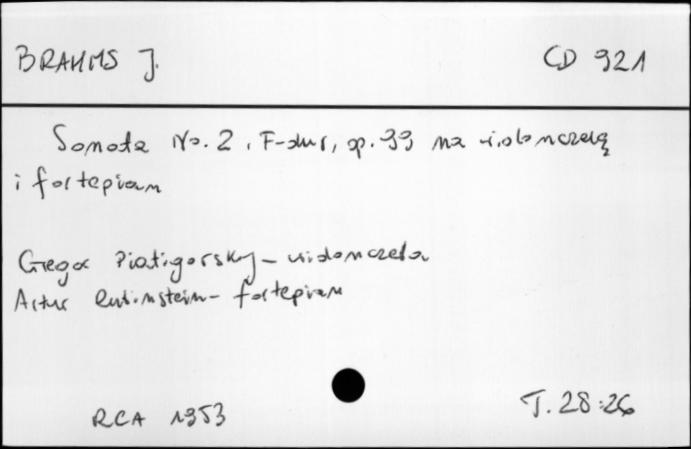 BRAHMS J.
CD 921
Sonata No. 2, F-dur, op. 99 na wiolonczelę
i fortepian
Gregor Piatigorsky - wiolonczela
Artur Rubinstein - fortepian
RCA 1953
T. 28:26